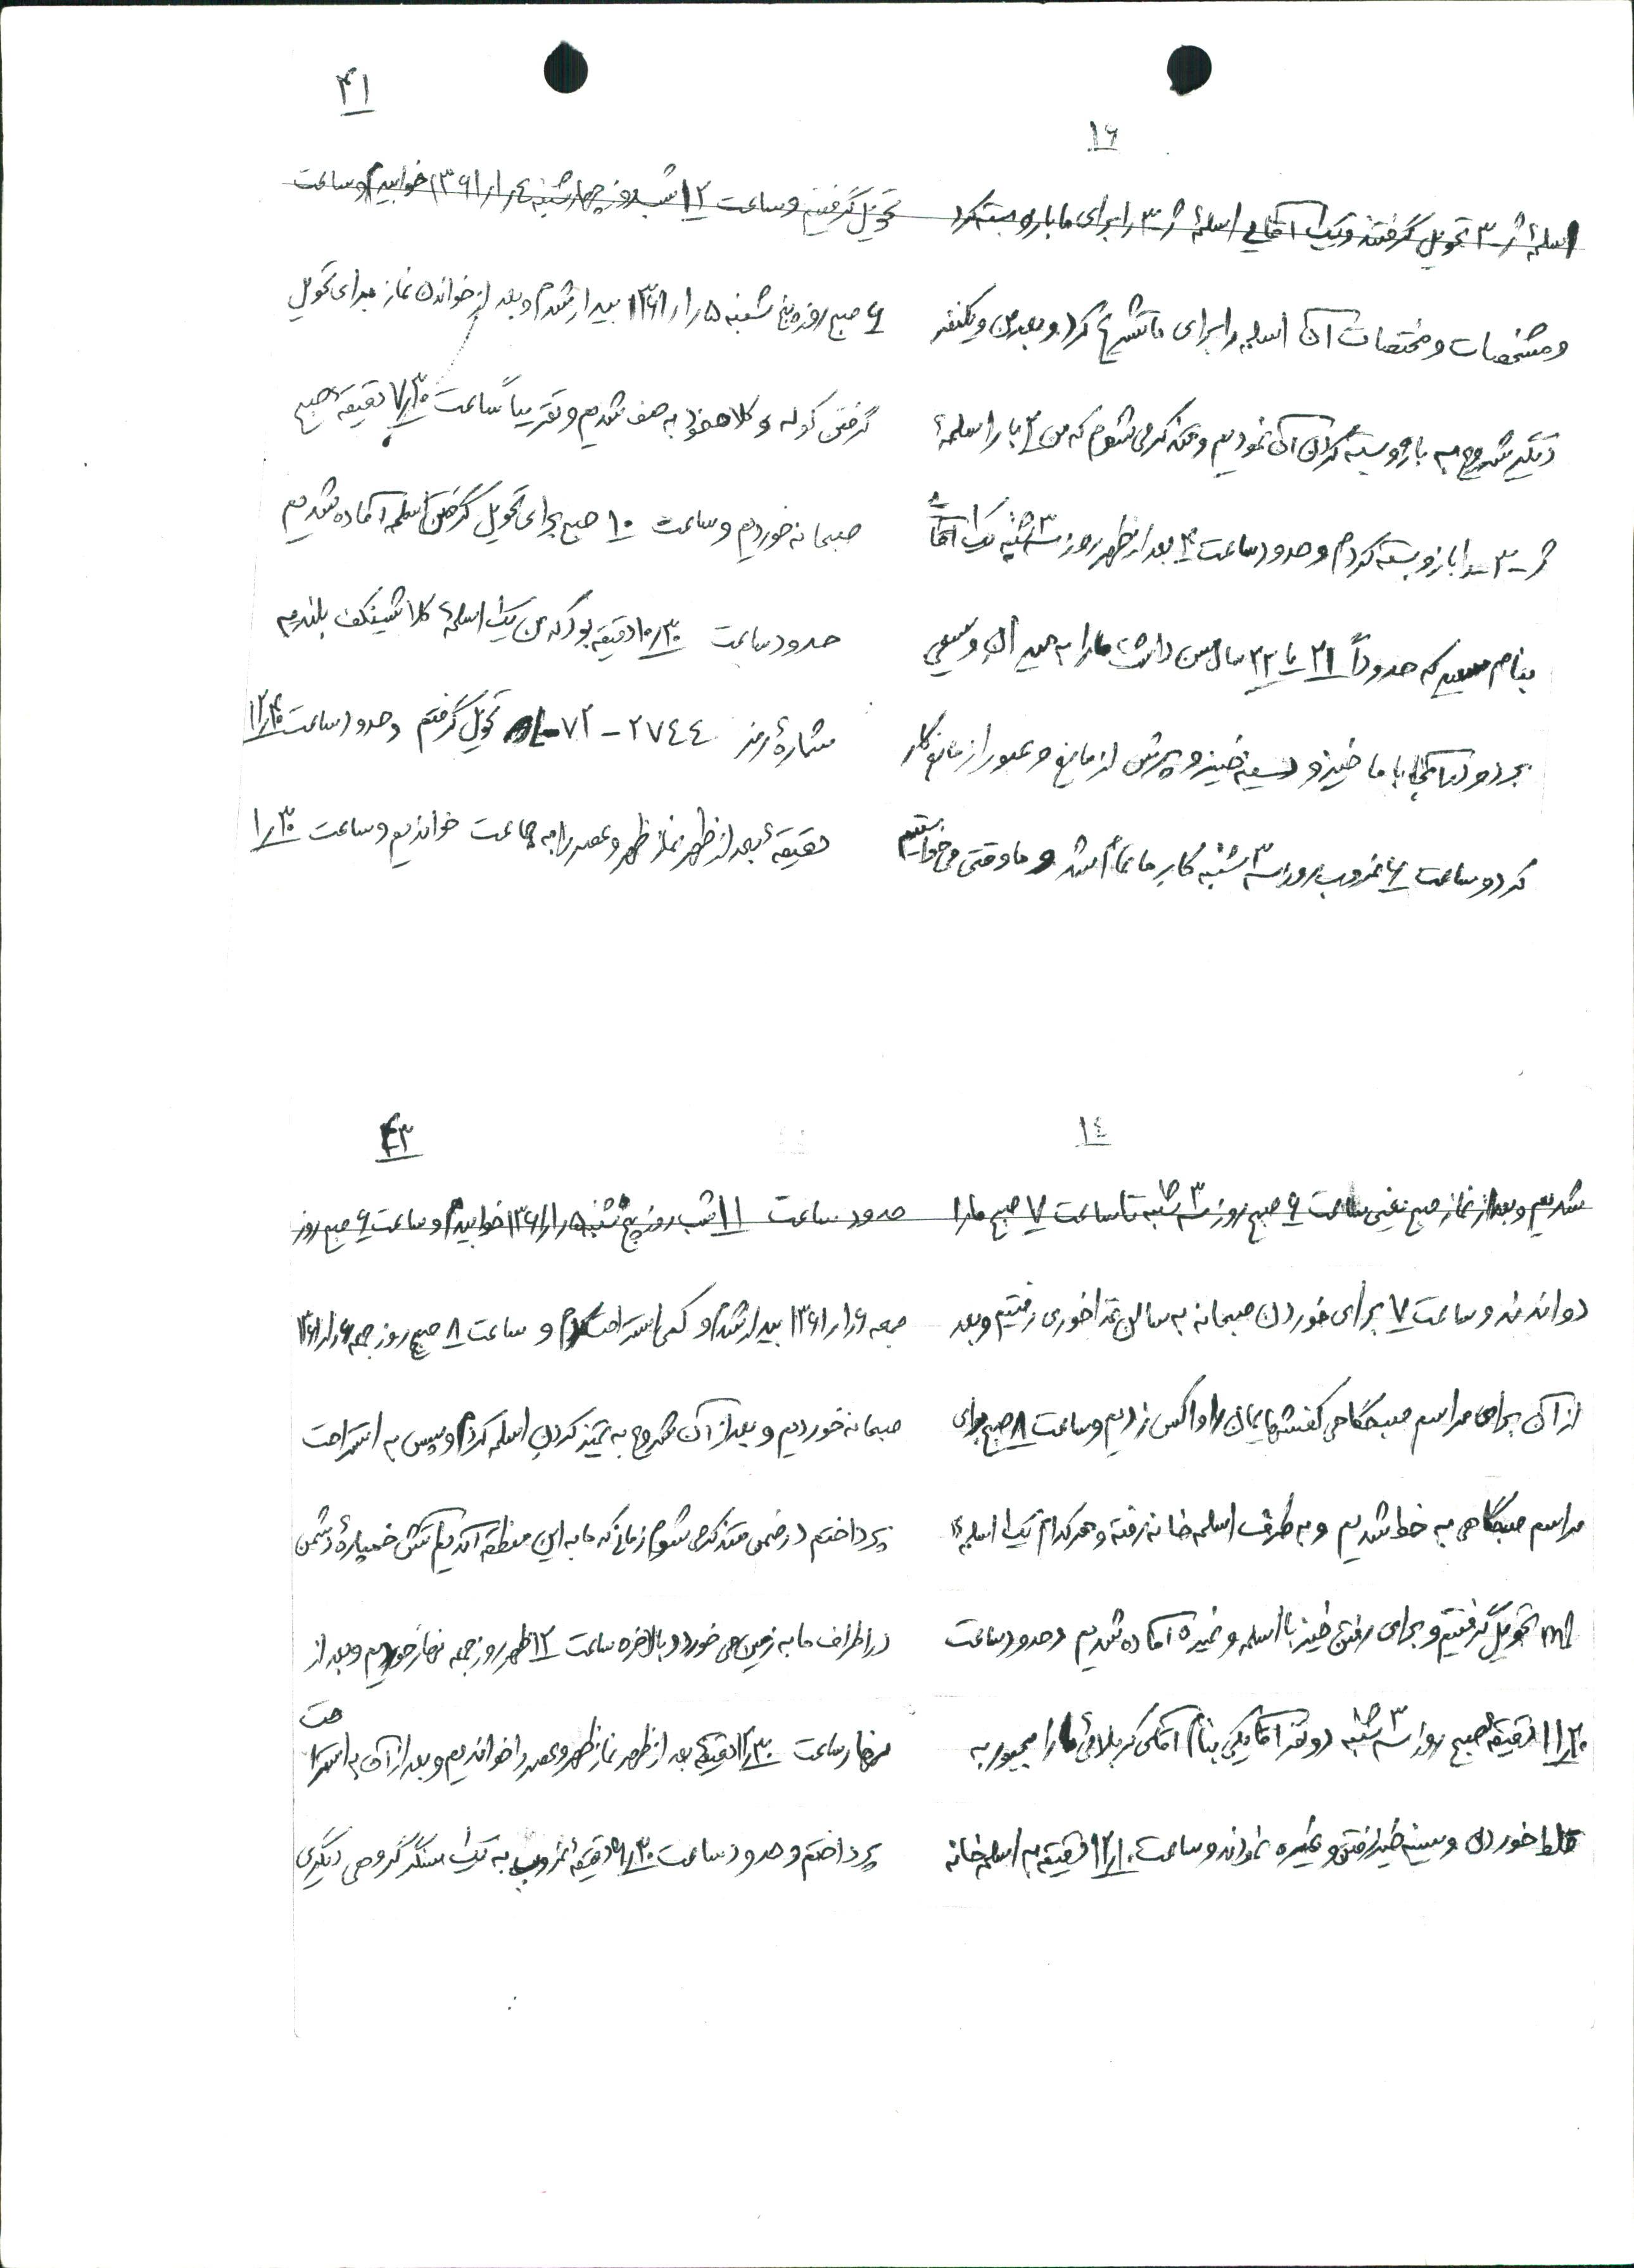 ۱۶
اسلحهٔ ژ-۳ تحویل گرفتند و یک آقایی اسلحهٔ ژ-۳ را برای ما باز و بسته کرد
و مشخصات و مختصات آن اسلحه را برای ما تشریح کرد و بعد من و یکنفر
دیگر شروع به باز و بسته کردن آن نمودیم و متذکر می شوم که من ۲ بار اسلحهٔ
ژ-۳ را باز و بسته کردم و حدود ساعت ۴ بعد از ظهر روز ۳ شنبه یک آقا
بنام سعید که حدوداً ۲۱ یا ۲۲ سال سن داشت ما را به میدان وسیعی
برد و در آنجا با ما خیز و سینه خیز و پرش از مانع و عبور از مانع کار
کرد و ساعت ۶ غروب روز ۳ شنبه کار ما تمام شد و ما وقتی می خواستیم
۴۱
تحویل گرفتیم و ساعت ۱۲ شب روز چهارشنبه ۴ر۱ر۱۳۶۱ خوابیدم و ساعت
۶ صبح روز پنج شنبه ۵ر۱ر۱۳۶۱ بیدار شدم و بعد از خواندن نماز برای تحویل
گرفتن کوله و کلاهخود به صف شدیم و تقریباً ساعت ۷ر۳۰ دقیقهٔ صبح
صبحانه خوردیم و ساعت ۱۰ صبح برای تحویل گرفتن اسلحه آماده شدیم
حدود ساعت ۱۰ر۳۰ دقیقه بود که من یک اسلحهٔ کلاشینکف بلندم
شمارهٔ رمز ۲۷۴۴ - ۷۲ تحویل گرفتم و حدود ساعت ۱۲ر۴۰
دقیقهٔ بعد از ظهر نماز ظهر و عصر را به جماعت خواندیم و ساعت ۱ر۳۰
۱۴
شدیم و بعد از نماز صبح یعنی ساعت ۶ صبح روز ۳ شنبه تا ساعت ۷ صبح ما را
دواندند و ساعت ۷ برای خوردن صبحانه به سالن غذاخوری رفتیم و بعد
از آن برای مراسم صبحگاهی کفشهایمان را واکس زدیم و ساعت ۸ صبح برای
مراسم صبحگاهی به خط شدیم و به طرف اسلحه خانه رفته و هر کدام یک اسلحهٔ
تحویل گرفتیم و برای رفتن خیز با اسلحه و غیره آماده شدیم و حدود ساعت
۱۱ر۲۰ دقیقهٔ صبح روز ۳ شنبه دو نفر آقا یکی بنام آقای کربلائی ما را مجبور به
غلط خوردن و سینه خیز رفتن و غیره نمودند و ساعت ۱۲ر۱۰ دقیقه به اسلحه خانه
۴۳
حدود ساعت ۱۱ شب روز پنج شنبه ۵ر۱ر۱۳۶۱ خوابیدم و ساعت ۶ صبح روز
جمعه ۶ر۱ر۱۳۶۱ بیدار شدم و کمی استراحت کردم و ساعت ۸ صبح روز جمعه ۶ر۱ر۱۳۶۱
صبحانه خوردیم و بعد از آن شروع به تمیز کردن اسلحه کردم و سپس به استراحت
پرداختم در ضمن متذکر می شوم زمانی که ما به این منطقه آمدیم آتش خمپارهٔ دشمن
در اطراف ما به زمین می خورد و بالاخره ساعت ۱۲ ظهر روز جمعه نهار خوردیم و بعد از
نهار ساعت ۱۲ر۳۰ دقیقهٔ بعد از ظهر نماز ظهر و عصر را خواندیم و بعد از آن به استراحت
پرداختم و حدود ساعت ۵ر۳۰ دقیقهٔ غروب به یک سنگر گروهی دیگری